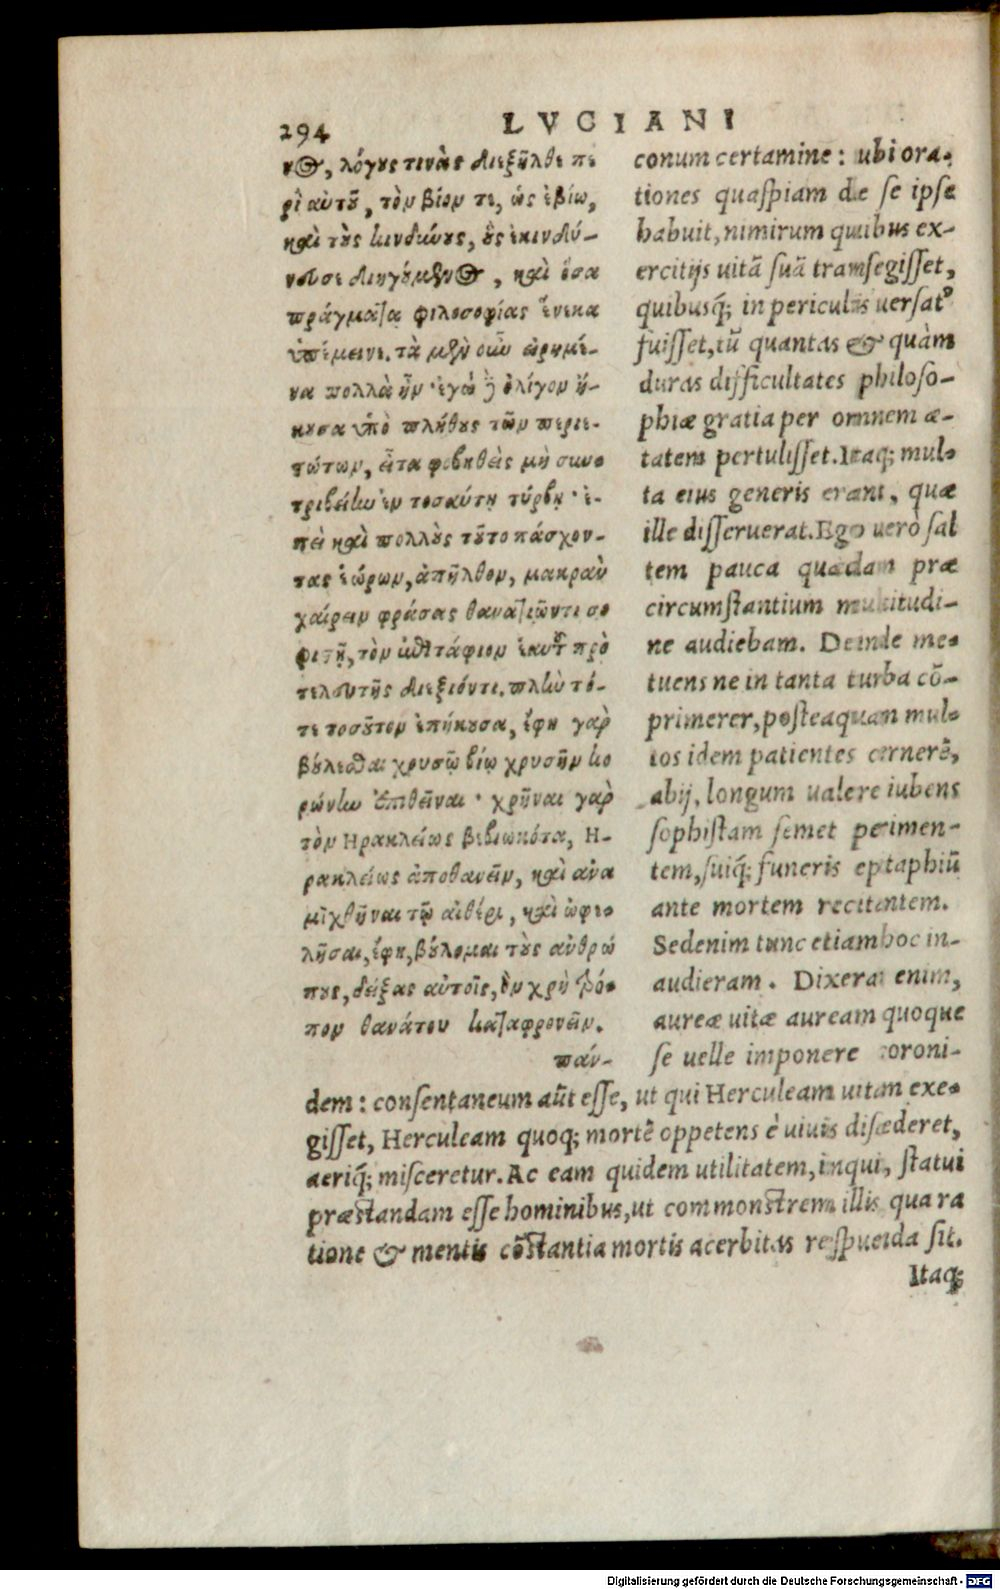 294
LVCIANI
νος, λόγους τινὰς διεξῆλθε πε
ρὶ αὐτοῦ, τὸν βίον τε, ὡς ἐβίω,
καὶ τοὺς κινδύνους, οὓς ἐκινδύ-
νευσε διηγούμενος, καὶ ὅσα
πράγματα φιλοσοφίας ἕνεκα
ὑπέμεινε. τὰ μὲν οὖν εἰρημέ-
να πολλὰ ἦν· ἐγὼ δὲ ὀλίγον ἤ-
κουσα ὑπὸ πλήθους τῶν περιε-
στώτων, εἶτα φοβηθεὶς μὴ συν-
τριβείην ἐν τοσαύτῃ τύρβῃ· ἐ-
πεὶ καὶ πολλοὺς τοῦτο πάσχον-
τας ἑώρων, ἀπῆλθον, μακρὰν
χαίρειν φράσας θανατιῶντι σο
φιστῇ, τὸν ἐπιτάφιον ἑαυτοῦ πρὸ
τελευτῆς διεξιόντι. πλὴν τό-
τε τοσοῦτον ἐπήκουσα, ἔφη γὰρ
βούλεσθαι χρυσῷ βίῳ χρυσῆν κο
ρώνην ἐπιθεῖναι· χρῆναι γὰρ
τὸν Ηρακλείως βεβιωκότα, Η-
ρακλείως ἀποθανεῖν, καὶ ἀνα
μιχθῆναι τῷ αἰθέρι, καὶ ὠφε-
λῆσαι, ἔφη, βούλομαι τοὺς ἀνθρώ
πους, δείξας αὐτοῖς, ὃν χρὴ τρό-
πον θανάτου καταφρονεῖν.
πάν-
conum certamine: ubi ora-
tiones quaspiam de se ipse
habuit, nimirum quibus ex-
ercitijs uitã suã transegisset,
quibusq́; in periculis uersatꝰ
fuisset, tũ quantas & quàm
duras difficultates philoso-
phiæ gratia per omnem æ-
tatem pertulisset. Itaq; mul-
ta eius generis erant, quæ
ille disseruerat. Ego uerò sal
tem pauca quædam præ
circumstantium multitudi-
ne audiebam. Deinde me-
tuens ne in tanta turba cõ-
primerer, posteaquam mul-
tos idem patientes cernerẽ,
abij, longum ualere iubens
sophistam semet perimen-
tem, suiq́; funeris epitaphiũ
ante mortem recitantem.
Sed enim tunc etiam hoc in-
audieram. Dixerat enim,
aureæ uitæ auream quoque
se uelle imponere coroni-
dem: consentaneum aũt esse, ut qui Herculeam uitam exe-
gisset, Herculeam quoq; mortẽ oppetens è uiuis discederet,
aeriq́; misceretur. Ac eam quidem utilitatem, inquit, statui
præstandam esse hominibus, ut commonstrem illis qua ra
tione & mentis cõstantia mortis acerbitas respuenda sit.
Itaq;
Digitalisierung gefördert durch die Deutsche Forschungsgemeinschaft - DFG